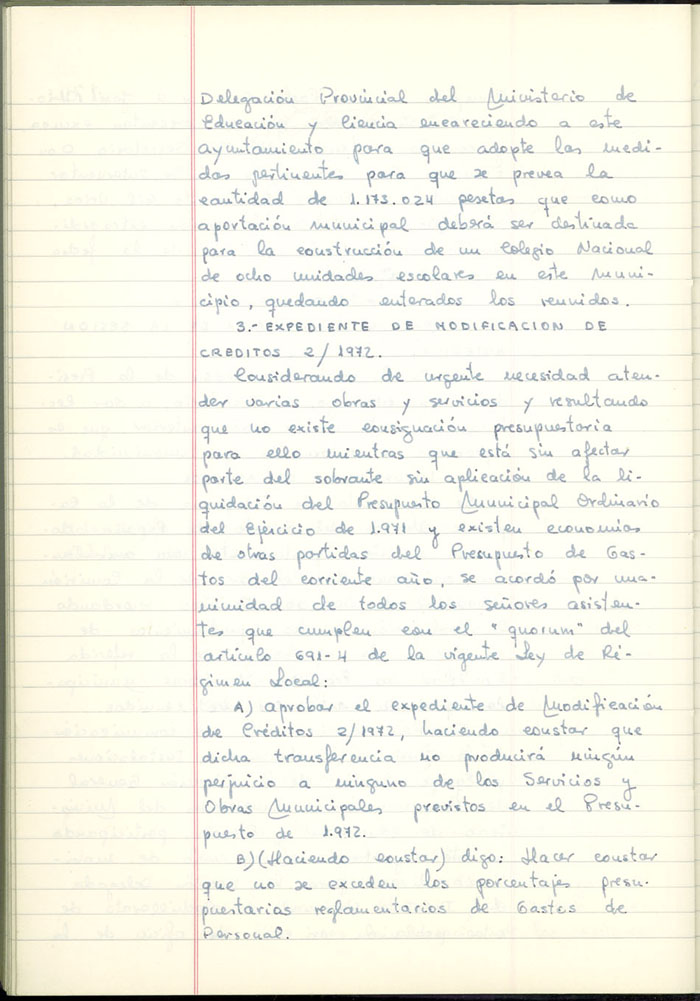 Delegación Provincial del Ministerio de
Educación y Ciencia encareciendo a este
Ayuntamiento para que adopte las medi-
das pertinentes para que se prevea la
cantidad de 1.173.024 pesetas que como
aportación municipal deberá ser destinada
para la construcción de un Colegio Nacional
de ocho unidades escolares en este Muni-
cipio, quedando enterados los reunidos.
3.- EXPEDIENTE DE MODIFICACION DE
CREDITOS 2/1972.
Considerando de urgente necesidad aten-
der varias obras y servicios y resultando
que no existe consignación presupuestaria
para ello mientras que está sin afectar
parte del sobrante sin aplicación de la li-
quidación del Presupuesto Municipal Ordinario
del Ejercicio de 1.971 y existen economías
de otras partidas del Presupuesto de Gas-
tos del corriente año, se acordó por una-
nimidad de todos los señores asisten-
tes que cumplen con el "quorum" del
artículo 691-4 de la vigente Ley de Ré-
gimen Local:
A) aprobar el expediente de Modificación
de Créditos 2/1972, haciendo constar que
dicha transferencia no producirá ningún
perjuicio a ninguno de los Servicios y
Obras Municipales previstos en el Presu-
puesto de 1.972.
B) (Haciendo constar) digo: Hacer constar
que no se exceden los porcentajes presu-
puestarias reglamentarios de Gastos de
Personal.